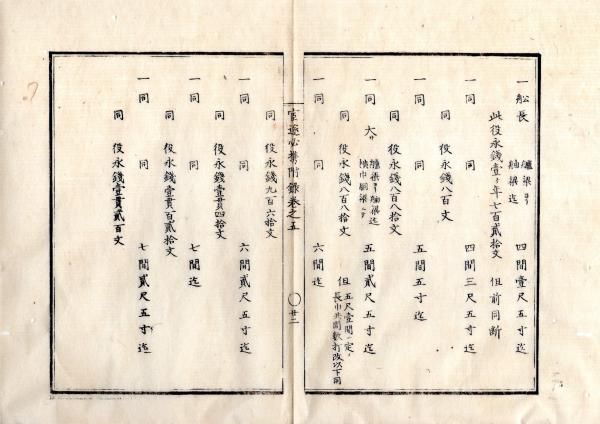 一舩長 艫梁ヨリ 舳梁迄 四間壹尺五寸迄
此役永錢壹ヶ年七百貳拾文 但前同断
一同 同 四間三尺五寸迄
同 役永錢八百文
一同 同 五間五寸迄
同 役永錢八百八拾文
一同 大サ 艫梁ヨリ舳梁迄 五間貳尺五寸迄
同 役永錢八百八拾文 但 五尺壹間ノ定
長巾共間數打改以下同
一同 同 六間迄
宦遊必携附錄卷之五 〇廿二
同 役永錢九百六拾文
一同 同 六間貳尺五寸迄
同 役永錢壹貫四拾文
一同 同 七間迄
同 役永錢壹貫百貳拾文
一同 同 七間貳尺五寸迄
同 役永錢壹貫貳百文